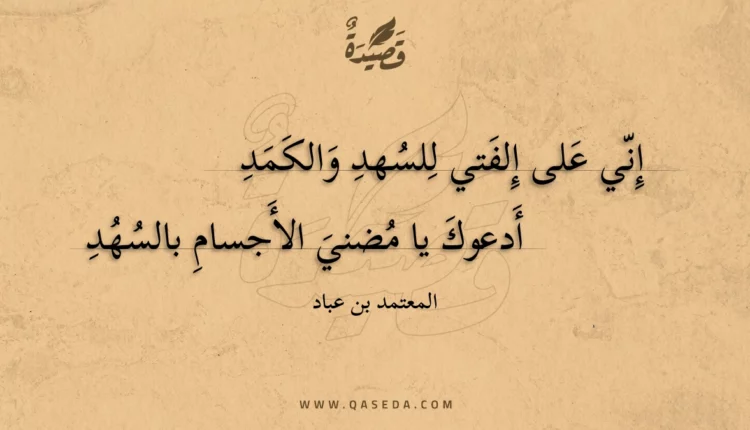 قَصِيْدَةٌ
إِنّي عَلى إِلفَتي لِلسُهدِ وَالكَمَدِ
أَدعوكَ يا مُضنيَ الأَجسامِ بالسُهُدِ
المعتمد بن عباد
WWW.QASEDA.COM